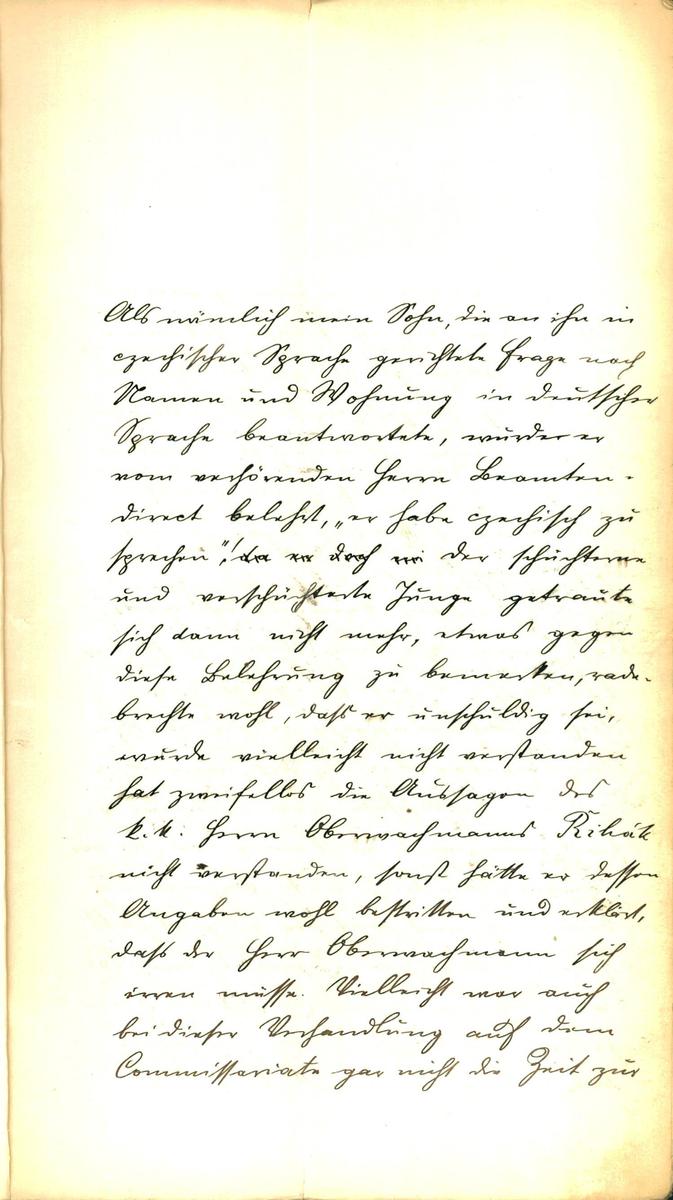 Als nämlich mein Sohn, die an ihn in
czechischer Sprache gerichtete Frage nach
Namen und Wohnung in deutscher
Sprache beantwortete, wurde er
vom verhörenden Herrn Beamten
direct belehrt, „er habe czechisch zu
sprechen“! da er doch der schüchterne
und verschüchterte Junge getraute
sich dann nicht mehr, etwas gegen
diese Belehrung zu bemerken, rade-
brechte wohl, dass er unschuldig sei,
wurde vielleicht nicht verstanden
hat zweifellos die Aussagen des
k. k. Herrn Oberwachmanns Rihák
nicht verstanden, sonst hätte er dessen
Angaben wohl bestritten und erklärt,
dass der Herr Oberwachmann sich
irren müsse. Vielleicht war auch
bei dieser Verhandlung auf dem
Commissariate gar nicht die Zeit zur